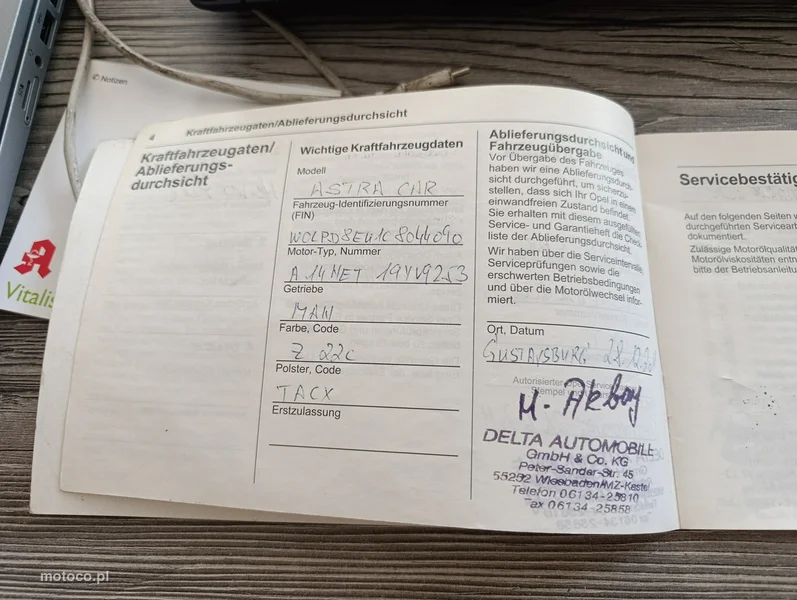 © Notizen
4 Kraftfahrzeugaten/Ablieferungsdurchsicht
Kraftfahrzeugaten/
Ablieferungs-
durchsicht
Wichtige Kraftfahrzeugdaten
Modell
ASTRA CAR
Fahrzeug-Identifizierungsnummer
(FIN)
W0LPD8EU1C8044090
Motor-Typ, Nummer
A14NET 19VV9253
Getriebe
MAN
Farbe, Code
Z 22C
Polster, Code
TACX
Erstzulassung
Ablieferungsdurchsicht und
Fahrzeugübergabe
Vor Übergabe des Fahrzeuges
haben wir eine Ablieferungsdurch-
sicht durchgeführt, um sicherzu-
stellen, dass sich Ihr Opel in einem
einwandfreien Zustand befindet.
Sie erhalten mit diesem ausgefüllten
Service- und Garantieheft die Check-
liste der Ablieferungsdurchsicht.
Wir haben über die Serviceintervalle,
Serviceprüfungen sowie die
erschwerten Betriebsbedingungen
und über die Motorölwechsel infor-
miert.
Ort, Datum
GUSTAVSBURG 28.12.
Autorisierter Opel Service
Stempel
M. Akbay
DELTA AUTOMOBILE
GmbH & Co. KG
Peter-Sander-Str. 45
55252 Wiesbaden/MZ-Kastel
Telefon 06134-25810
Fax 06134-25858
Servicebestätig
Auf den folgenden Seiten w
durchgeführten Servicearb
dokumentiert.
Zulässige Motorölqualität
Motorölviskositäten entn
bitte der Betriebsanleitu
Vitalis
motoco.pl